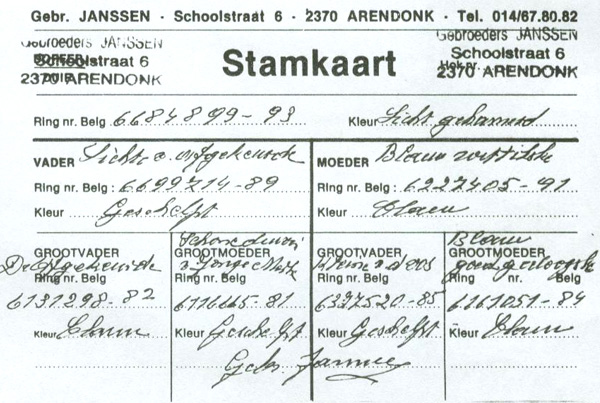 Gebr. JANSSEN · Schoolstraat 6 · 2370 ARENDONK · Tel. 014/67.80.82
Gebroeders JANSSEN Gebroeders JANSSEN
Schoolstraat 6 Stamkaart Schoolstraat 6
2370 ARENDONK 2370 ARENDONK
Ring nr. Belg 6684899-93 Kleur Licht
VADER MOEDER Blauw
Ring nr. Belg : 6699714-89 Ring nr. Belg : 6227405-91
Kleur Geschelpt Kleur Blauw
Blauw
GROOTVADER GROOTMOEDER GROOTVADER GROOTMOEDER
Ring nr. Belg Ring nr. Belg Ring nr. Belg Ring nr. Belg
6131298-82 6116665-81 6337520-85 6161051-84
Kleur Blauw Kleur Geschelpt Kleur Geschelpt Kleur Blauw
Gebr. Janssen